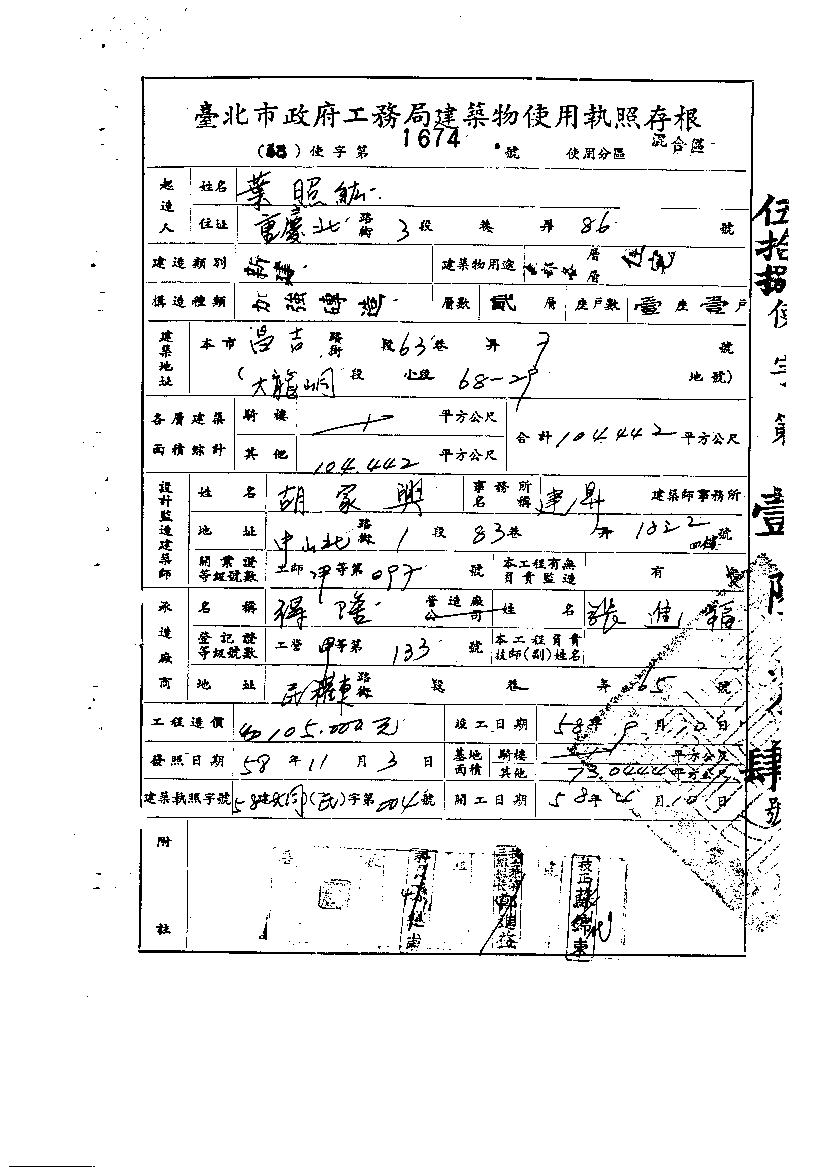 臺北市政府工務局建築物使用執照存根
( )使字第 1674 號 使用分區 混合區
起造人 姓名 葉照
住址 重慶北路街 3 段 巷 弄 86 號
建造類別 新建 建築物用途 層層 住宅
構造種類 加強磚造 層數 貳 層 座戶數 壹 座 壹 戶
建築地址 本市 昌吉 路街 段 63 巷 弄 7 號
(大龍峒 段 小段 68-29 地號)
各層建築面積綜計 騎樓 平方公尺 合計 104.442 平方公尺
其他 104.442 平方公尺
設計監造建築師 姓名 胡家興 事務所名稱 建 建築師事務所
地址 中山北路街 1 段 83 巷 弄 號
開業證等級號數 師 甲等第 097 號 本工程有無負責監造 有
承造廠商 名稱 營造廠公司 姓名 張
登記證等級號數 工營 甲等第 133 號 本工程負責技師(副)姓名
地址 民權東路街 段 巷 弄 65 號
工程造價 105.000 元 竣工日期 58 年 9 月 10 日
發照日期 58 年 11 月 3 日 基地面積 騎樓 平方公尺
其他 73.0444 平方公尺
建築執照字號 58建大同(民)字第004號 開工日期 58 年 4 月 10 日
附註
技正蘇錦東
伍拾捌使字第壹陸柒肆號